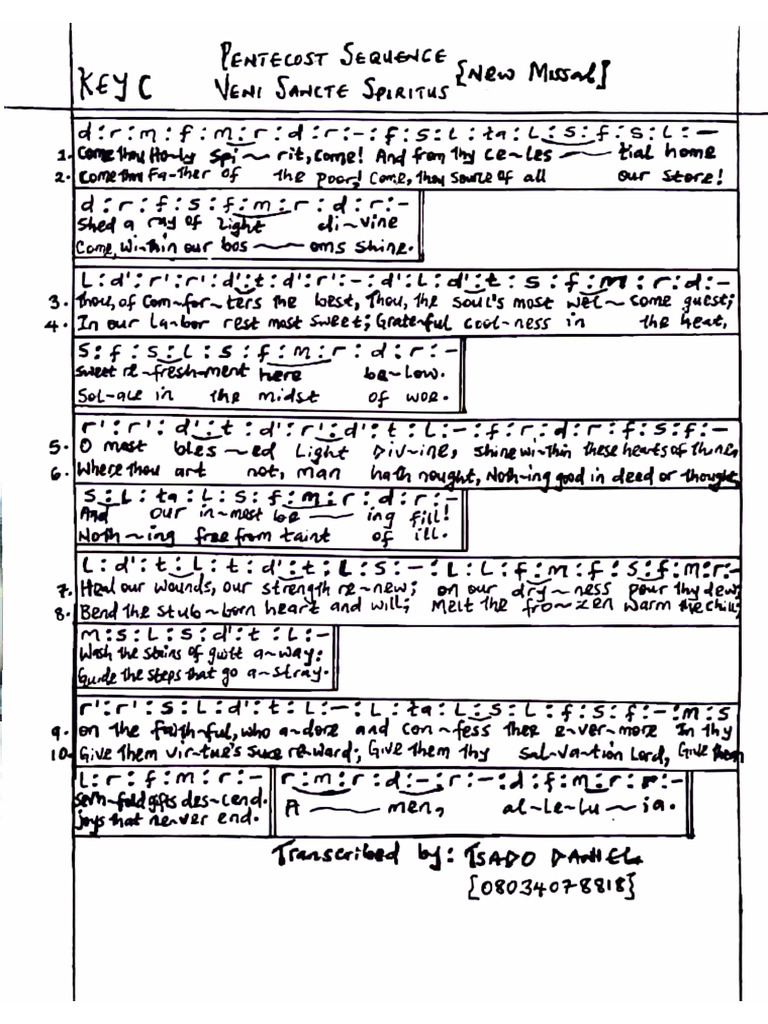 PENTECOST SEQUENCE
KEY C VENI SANCTE SPIRITUS [New Missal]
d:r:m:f:m:r:d:r:-:f:s:l:ta:l:s:f:s:l:-
1. Come thou Ho~ly Spi~rit, come! And from thy ce~les~tial home
2. Come thou Fa~ther of the poor! Come, thou source of all our store!
d:r:f:s:f:m:r:d:r:-
Shed a ray of light di~vine
Come, wi~thin our bos~oms shine.
L:d':r':r':d':t:d':r':-:d':L:d':t:s:f:m:r:d:-
3. Thou, of Com~for~ters the best, Thou, the soul's most wel~come guest;
4. In our la~bor rest most sweet; Grateful cool~ness in the heat,
S:f:s:L:s:f:m:r:d:r:-
Sweet re~fresh~ment here be~low.
Sol~ace in the midst of woe.
r':r':d':t:d':r':d':t:L:-:f:r:d:r:f:s:f:-
5. O most bles~ed Light Div~ine, Shine wi~thin these hearts of thine,
6. Where thou art not, man hath nought, Noth~ing good in deed or thought,
S:L:ta:L:s:f:m:r:d:r:-
And our in~most be~ing fill!
Noth~ing free from taint of ill.
L:d':t:L:t:d':t:L:S:-:L:L:f:m:f:s:f:m:r:-
7. Heal our wounds, our strength re~new; on our dry~ness pour thy dew;
8. Bend the stub~born heart and will; Melt the fro~zen warm the chill;
m:s:L:s:d':t:L:-
Wash the stains of guilt a~way:
Guide the steps that go a~stray.
r':r':s:L:d':t:L:-:L:ta:L:s:L:f:s:f:-:m:s
9. on the faith~ful, who a~dore and con~fess thee e~ver~more In thy
10. Give them vir~tue's sure re~ward; Give them thy sal~va~tion Lord, Give them
L:r:f:m:r:- r:m:r:d:-:r:-:d:f:m:r:r:-
Sevn~fold gifts des~cend. A~men, al~le~lu~ia.
joys that ne~ver end.
Transcribed by: TSADO DANIEL
[08034078818]